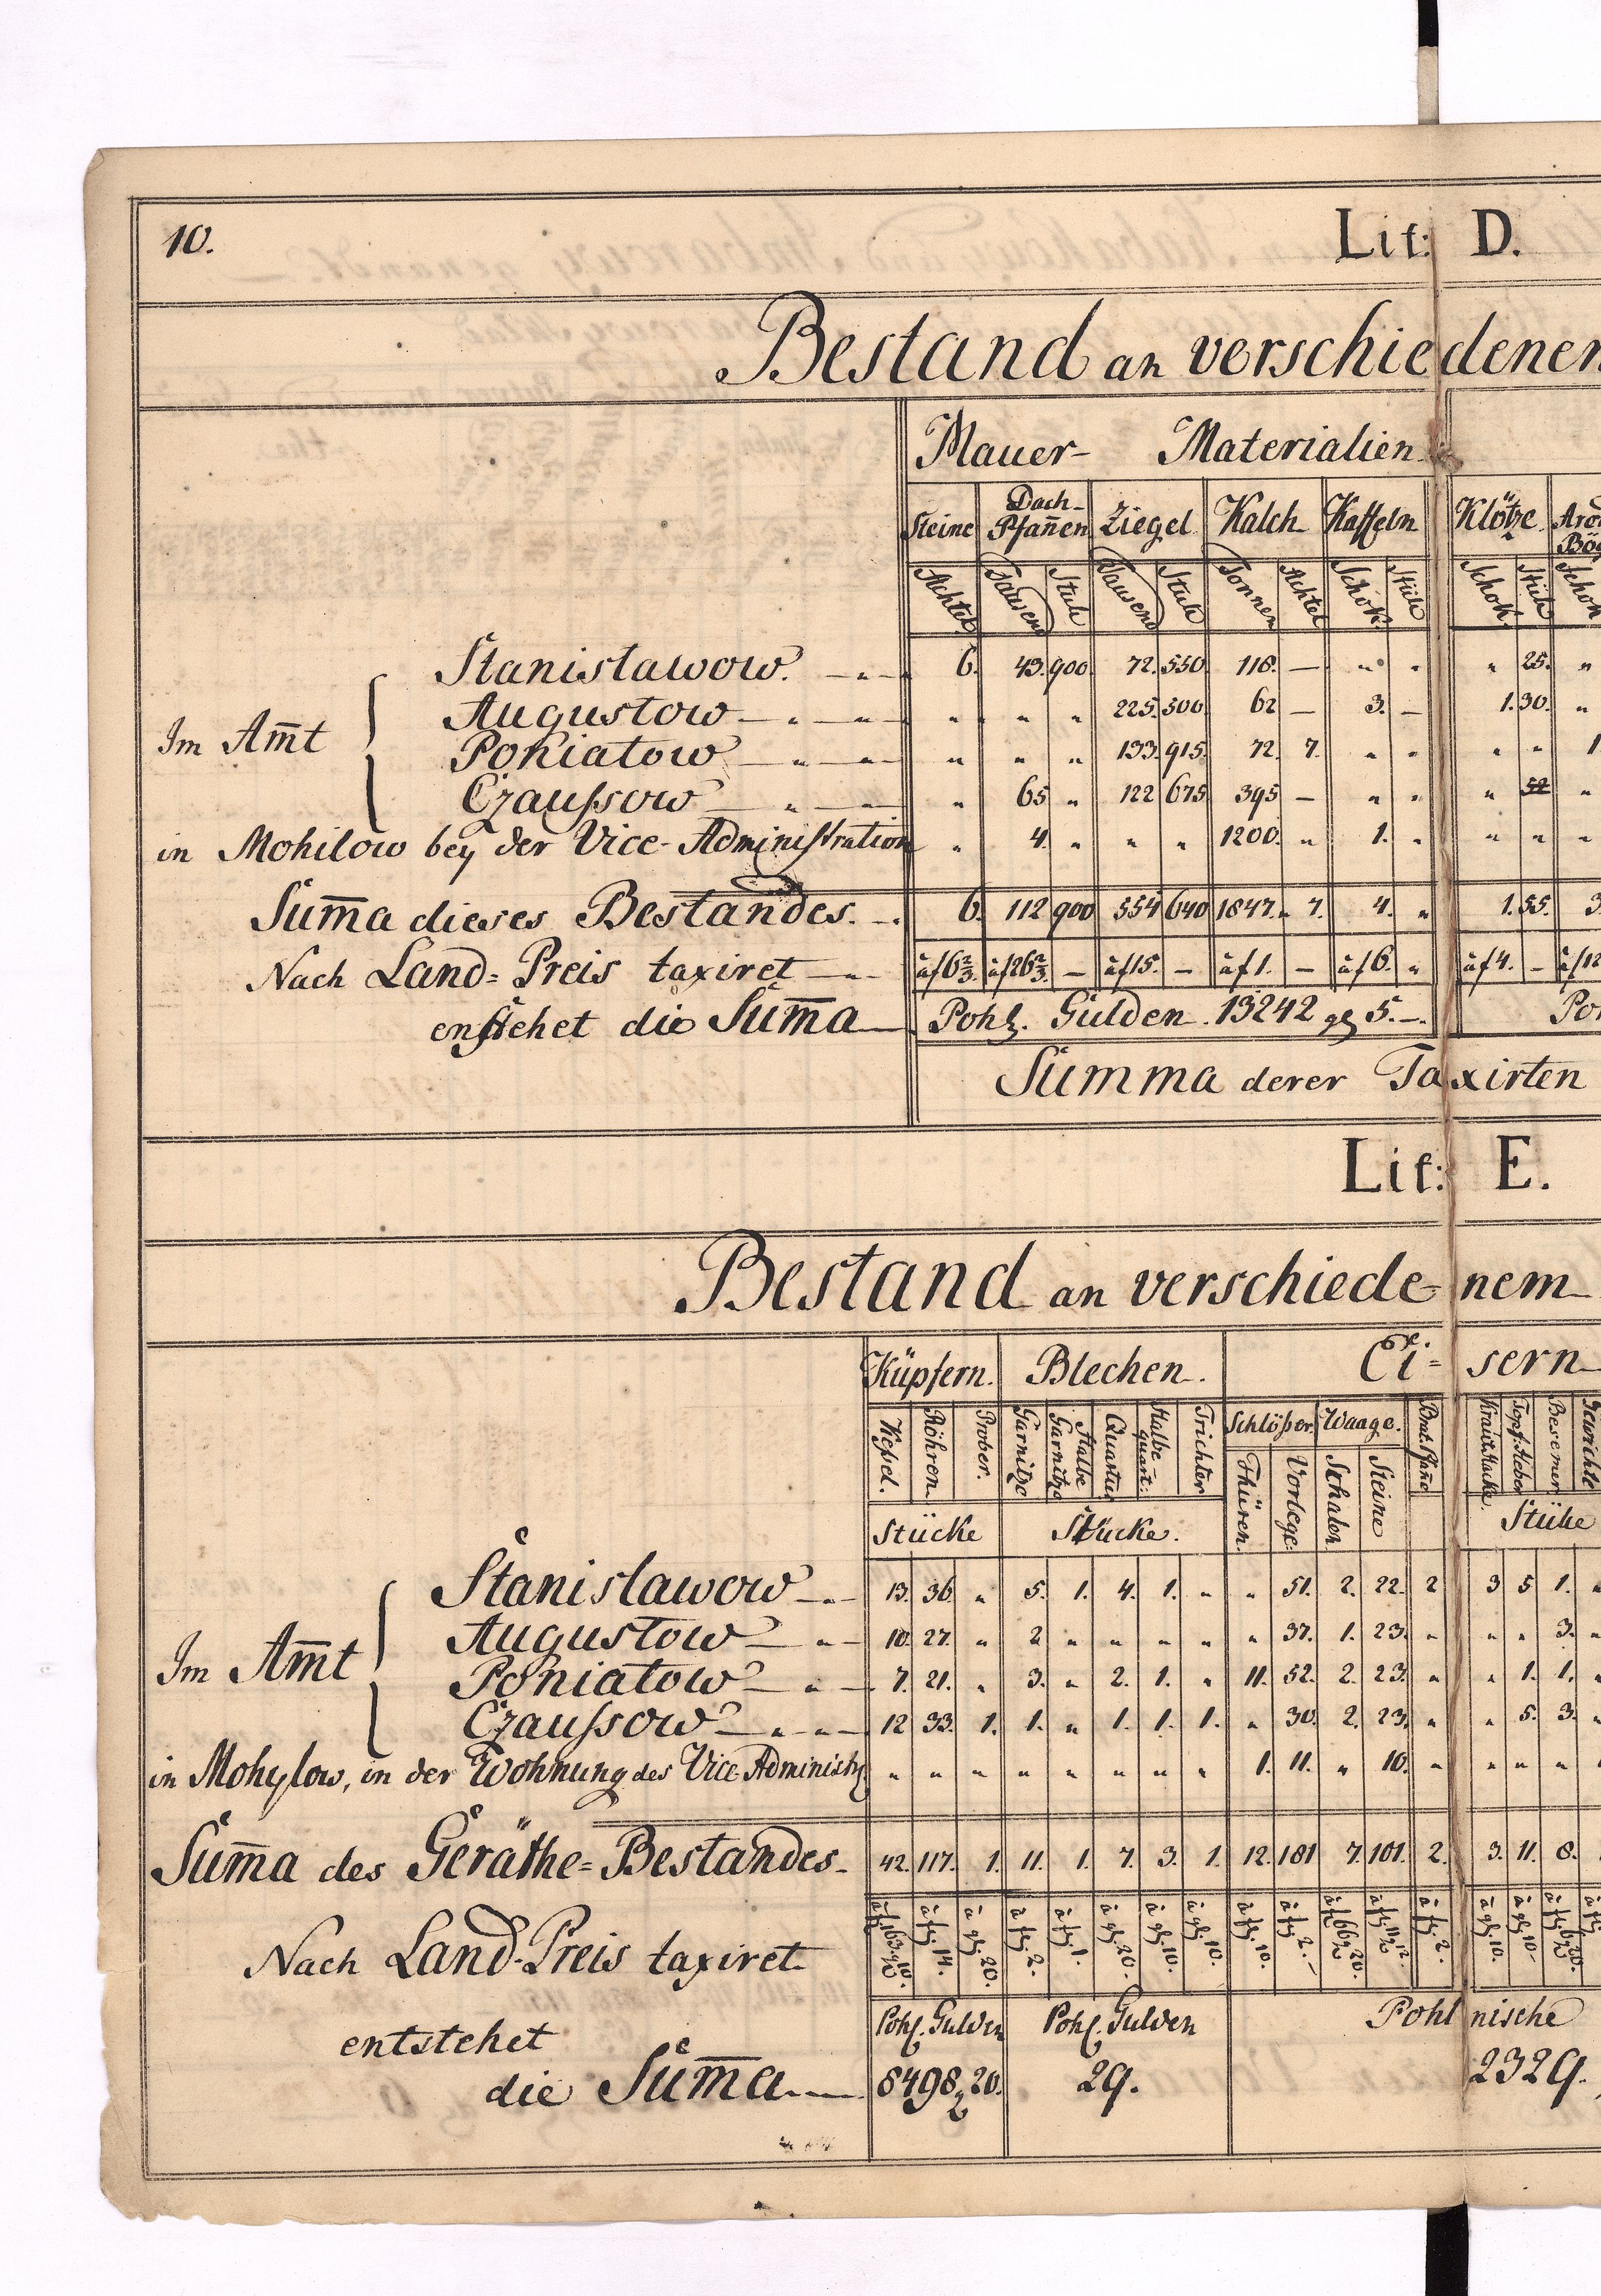 10. Lit: D.
Bestand an verschiedenen
Mauer- Materialien.
Steine Dach-Pfañen Ziegel Kalch Kaffeln Klötze
Achtel Tausend Stük Tausend Stük Tonnen Achtel Schok Stük Schok Stük Schok
Stanislawow. 6. 43. 900. 72. 550 118. — „ „ „ 25. „
Augustow „ „ „ 225. 500 62 — 3. — 1. 30. „
Im Am̅t Poniatow „ „ „ 133. 915. 72. 7. „ „ „ „ 1
Czaussow „ 65 „ 122 675 395 — „ „ „ 52 „
in Mohilow bey der Vice-Administration „ 4. „ „ „ 1200. „ 1. „ „ „ „
Sum̅a dieses Bestandes. 6. 112 900 554 640 1847. 7. 4. „ 1. 55. 3
Nach Land-Preis taxiret à f 6⅔. à f 26⅔. — à f 15. — à f 1. — à f 6. „ à f 4. — à f 12
enstehet die Sum̅a Pohl. Gulden. 13242 gl 5. —. Po
Summa derer Taxirten
Lit: E.
Bestand an verschiede-nem
Küpfern. Blechen. Ei-sern
Keßel. Röhren. Prober. Garnitze Halbe Garnitze Quartir Halbe quart: Trichter Schlößer. Waage. Brat-Pfañe Besemer Gewichte
Thüren. Vorlege- Schalen Steine
Stücke Stücke. Stüke
Stanislawow 13. 36. „ 5. 1. 4. 1. „ „ 51. 2. 22. 2 3 5 1. „
Augustow 10. 27. „ 2 „ „ „ „ „ 37. 1. 23. „ „ „ 3. „
Im Am̅t Poniatow 7. 21. „ 3. „ 2. 1. „ 11. 52. 2. 23. „ „ 1. 1. „
Czaussow 12 33. 1. 1. „ 1. 1. 1. „ 30. 2. 23. „ „ 5. 3. „
in Mohylow, in der Wohnung des Vice-Administr „ „ „ „ „ „ „ „ 1. 11. „ 10. „ „ „ „
Sum̅a des Geräthe-Bestandes 42. 117. 1. 11. 1. 7. 3. 1. 12. 181 7. 101. 2. 3. 11. 8.
Nach Land-Preis taxiret à f 163. g 10. à f 14. à gl 20. à f 2. à f 1. à gl 20. à gl 10. à gl 10. à f 10. à f 2. — à f 66 g 20. à f 11 g 12. à f 2. à gl 10. à gl 10. à f 6 g 20. à f
entstehet Pohl. Gulden Pohl. Gulden Pohl nische
die Sum̅a 8498 g 20. 29. 2329.